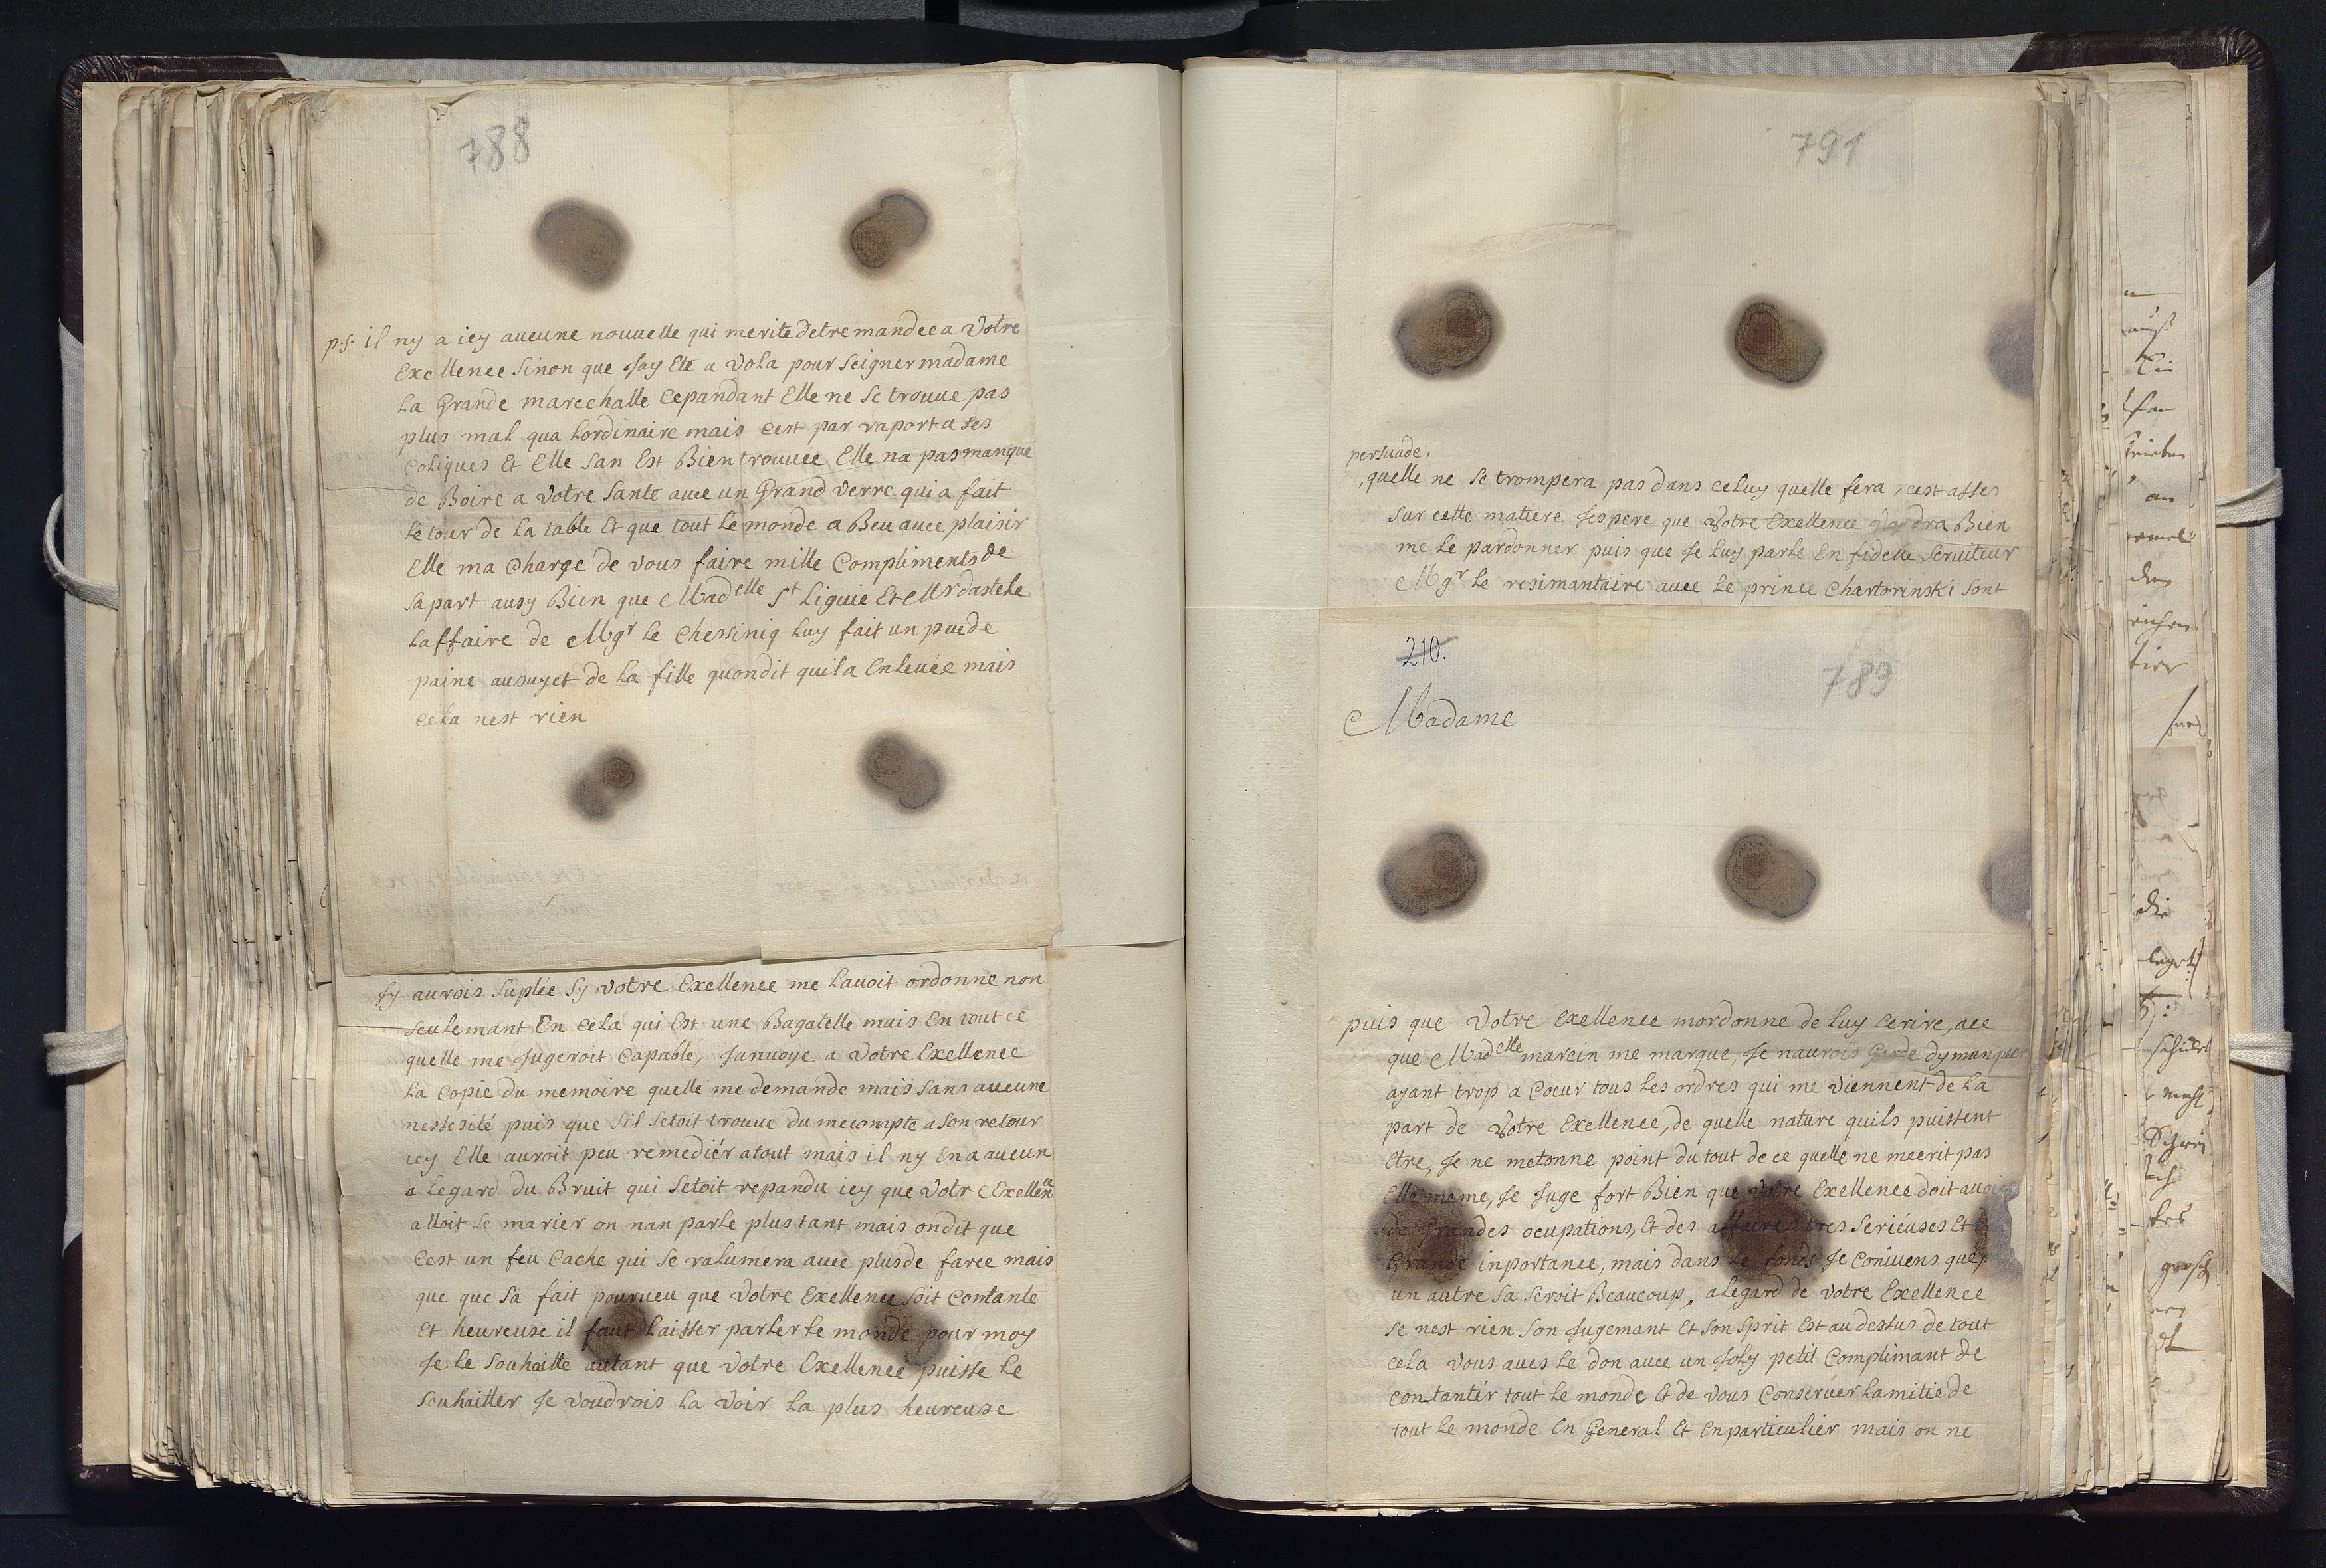 788
p.s. il ny a icy aucune nouuelle qui merite detre mandee a Votre
Exellence Sinon que Jay Ete a Vola pour Seigner madame
La Grande marechalle Cepandant Elle ne Se trouue pas
plus mal qua Lordinaire mais cest par raport a Ses
Coliques Et Elle San Est Bien trouuée Elle na pas manque
de Boire a Votre Sante auec un Grand Verre qui a fait
Le tour de La table Et que tout Le monde a Beu auec plaisir
Elle ma Charge de Vous faire mille Compliments de
Sa part ausy Bien que Madelle St Liguie Et Mr dastele
Laffaire de Mgr Le Chessiniq Luy fait un pue de
paine au sujet de La fille quon dit quil a Enleuée mais
Cela nest rien
Jy aurois Suplée Sy Votre Exellence me Lauoit ordonne non
Seulemant En Cela qui Est une Bagatelle mais En tout ce
quelle me Jugeroit Capable, Januoye a Votre Exellence
La Copie du memoire quelle me demande mais Sans aucune
nessesité puis que Sil Setoit trouue du mecompte a Son retour
icy Elle auroit peu remediér a tout mais il ny En a aucun
a Legard du Bruit qui Setoit repandu icy que Votre Exellence
alloit Se marier on nan parle plus tant mais on dit que
Cest un feu Cache qui Se ralumera auec plus de farce mais
que que Sa fait pourueu que Votre Exellence Soit Contante
Et heureuse il faut Laisser parler Le monde pour moy
Je Le Souhaitte autant que Votre Exellence puisse Le
Souhaitter Je Voudrois La Voir La plus heureuse
791
persuade,
quelle ne Se trompera pas dans celuy quelle fera, cest asses
Sur cette matiere Jespere que Votre Exellence Bien
me Le pardonner puis que Je Luy parle En fidelle Seruiteur
Mgr Le resimantaire auec Le prince Chartorinski Sont
210.
789
Madame
puis que Votre Exellence mordonne de Luy Ecrire, ace
que Madelle marcin me marque, Je naurois Garde dy manquer
ayant trop a Coeur tous Les ordres qui me Viennent de La
part de Votre Exellence, de quelle nature quils puissent
Etre, Je ne metonne point du tout de ce quelle ne mecrit pas
Elle meme, Je Juge fort Bien que Votre Exellence doit auoir
de Grandes ocupations, Et des affaires tres Seriéuses Et
Grande inportance, mais dans Le fonds Je Conuiens que
un autre Sa Seroit Beaucoup, a Legard de Votre Exellence
Se nest rien Son Jugemant Et Son Sprit Est au dessus de tout
cela Vous aues Le don auec un Joly petit Complimant de
contantér tout Le monde Et de Vous Conseruer Lamitie de
tout Le monde En General Et En particulier mais on ne